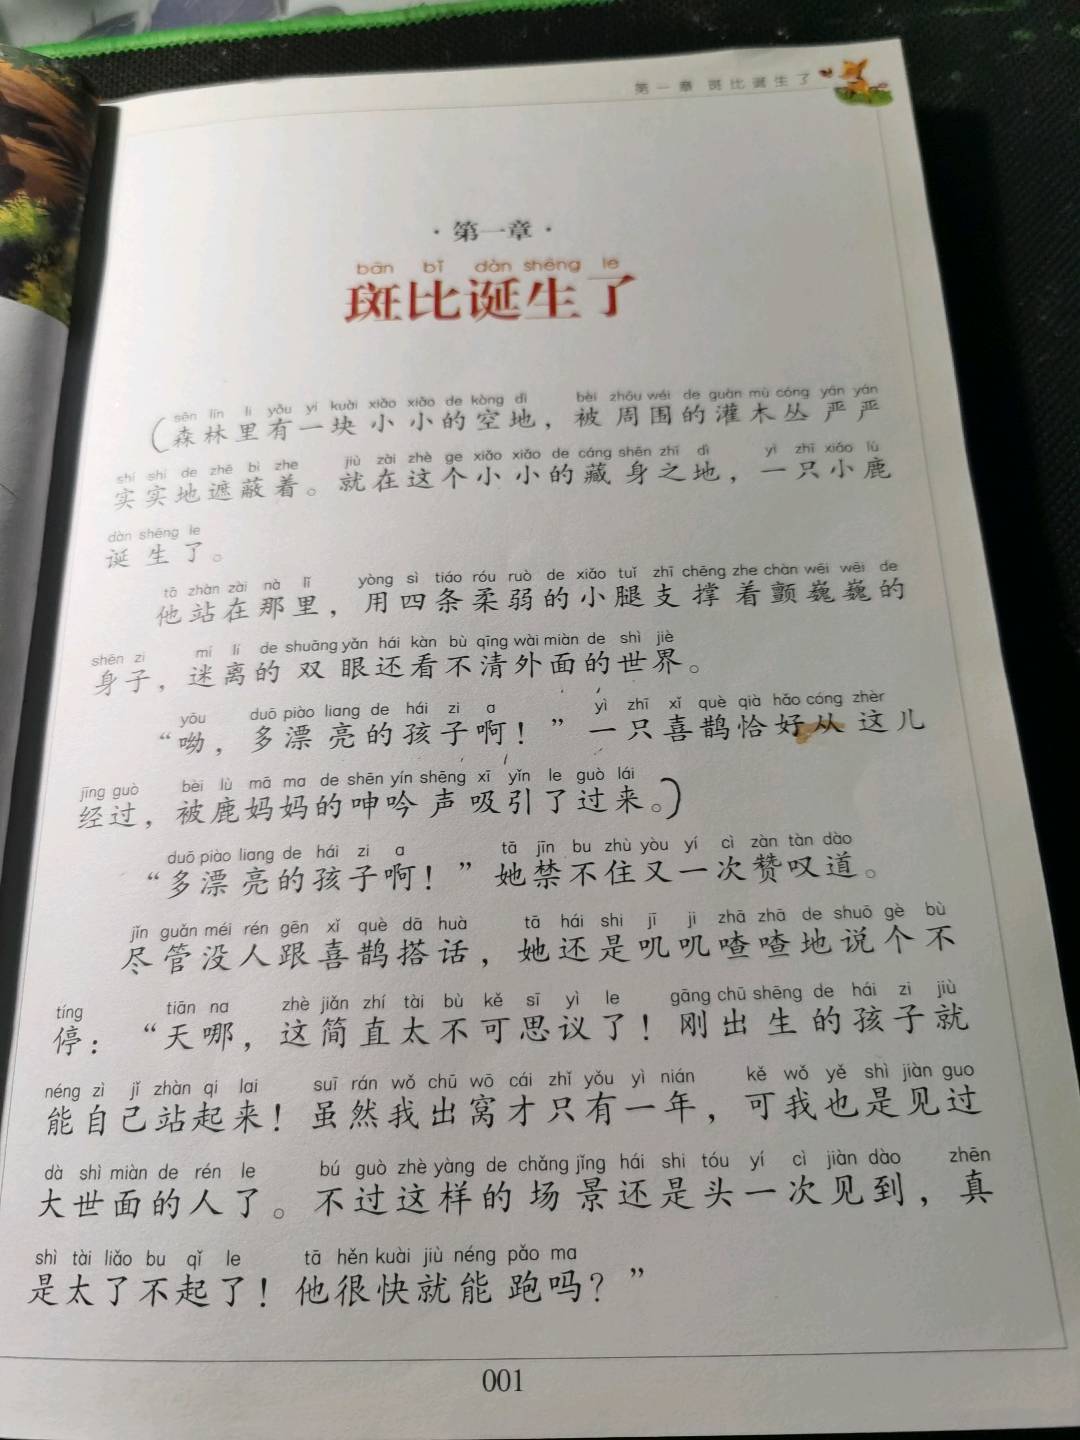 第一章 斑比诞生了
·第一章·
bān bǐ dàn shēng le
斑比诞生了
sēn lín lǐ yǒu yí kuài xiǎo xiǎo de kòng dì bèi zhōu wéi de guàn mù cóng yán yán
（森林里有一块小小的空地，被周围的灌木丛严严
shí shí de zhē bì zhe jiù zài zhè ge xiǎo xiǎo de cáng shēn zhī dì yì zhī xiǎo lù
实实地遮蔽着。就在这个小小的藏身之地，一只小鹿
dàn shēng le
诞生了。
tā zhàn zài nà lǐ yòng sì tiáo róu ruò de xiǎo tuǐ zhī chēng zhe chàn wēi wēi de
他站在那里，用四条柔弱的小腿支撑着颤巍巍的
shēn zi mí lí de shuāng yǎn hái kàn bù qīng wài miàn de shì jiè
身子，迷离的双眼还看不清外面的世界。
yōu duō piào liang de hái zi a yì zhī xǐ què qià hǎo cóng zhèr
“呦，多漂亮的孩子啊！”一只喜鹊恰好从这儿
jīng guò bèi lù mā ma de shēn yín shēng xī yǐn le guò lái
经过，被鹿妈妈的呻吟声吸引了过来。）
duō piào liang de hái zi a tā jīn bu zhù yòu yí cì zàn tàn dào
“多漂亮的孩子啊！”她禁不住又一次赞叹道。
jǐn guǎn méi rén gēn xǐ què dā huà tā hái shi jī ji zhā zhā de shuō gè bù
尽管没人跟喜鹊搭话，她还是叽叽喳喳地说个不
tíng tiān na zhè jiǎn zhí tài bù kě sī yì le gāng chū shēng de hái zi jiù
停：“天哪，这简直太不可思议了！刚出生的孩子就
néng zì jǐ zhàn qi lai suī rán wǒ chū wō cái zhǐ yǒu yì nián kě wǒ yě shì jiàn guo
能自己站起来！虽然我出窝才只有一年，可我也是见过
dà shì miàn de rén le bú guò zhè yàng de chǎng jǐng hái shi tóu yí cì jiàn dào zhēn
大世面的人了。不过这样的场景还是头一次见到，真
shì tài liǎo bu qǐ le tā hěn kuài jiù néng pǎo ma
是太了不起了！他很快就能跑吗？”
001